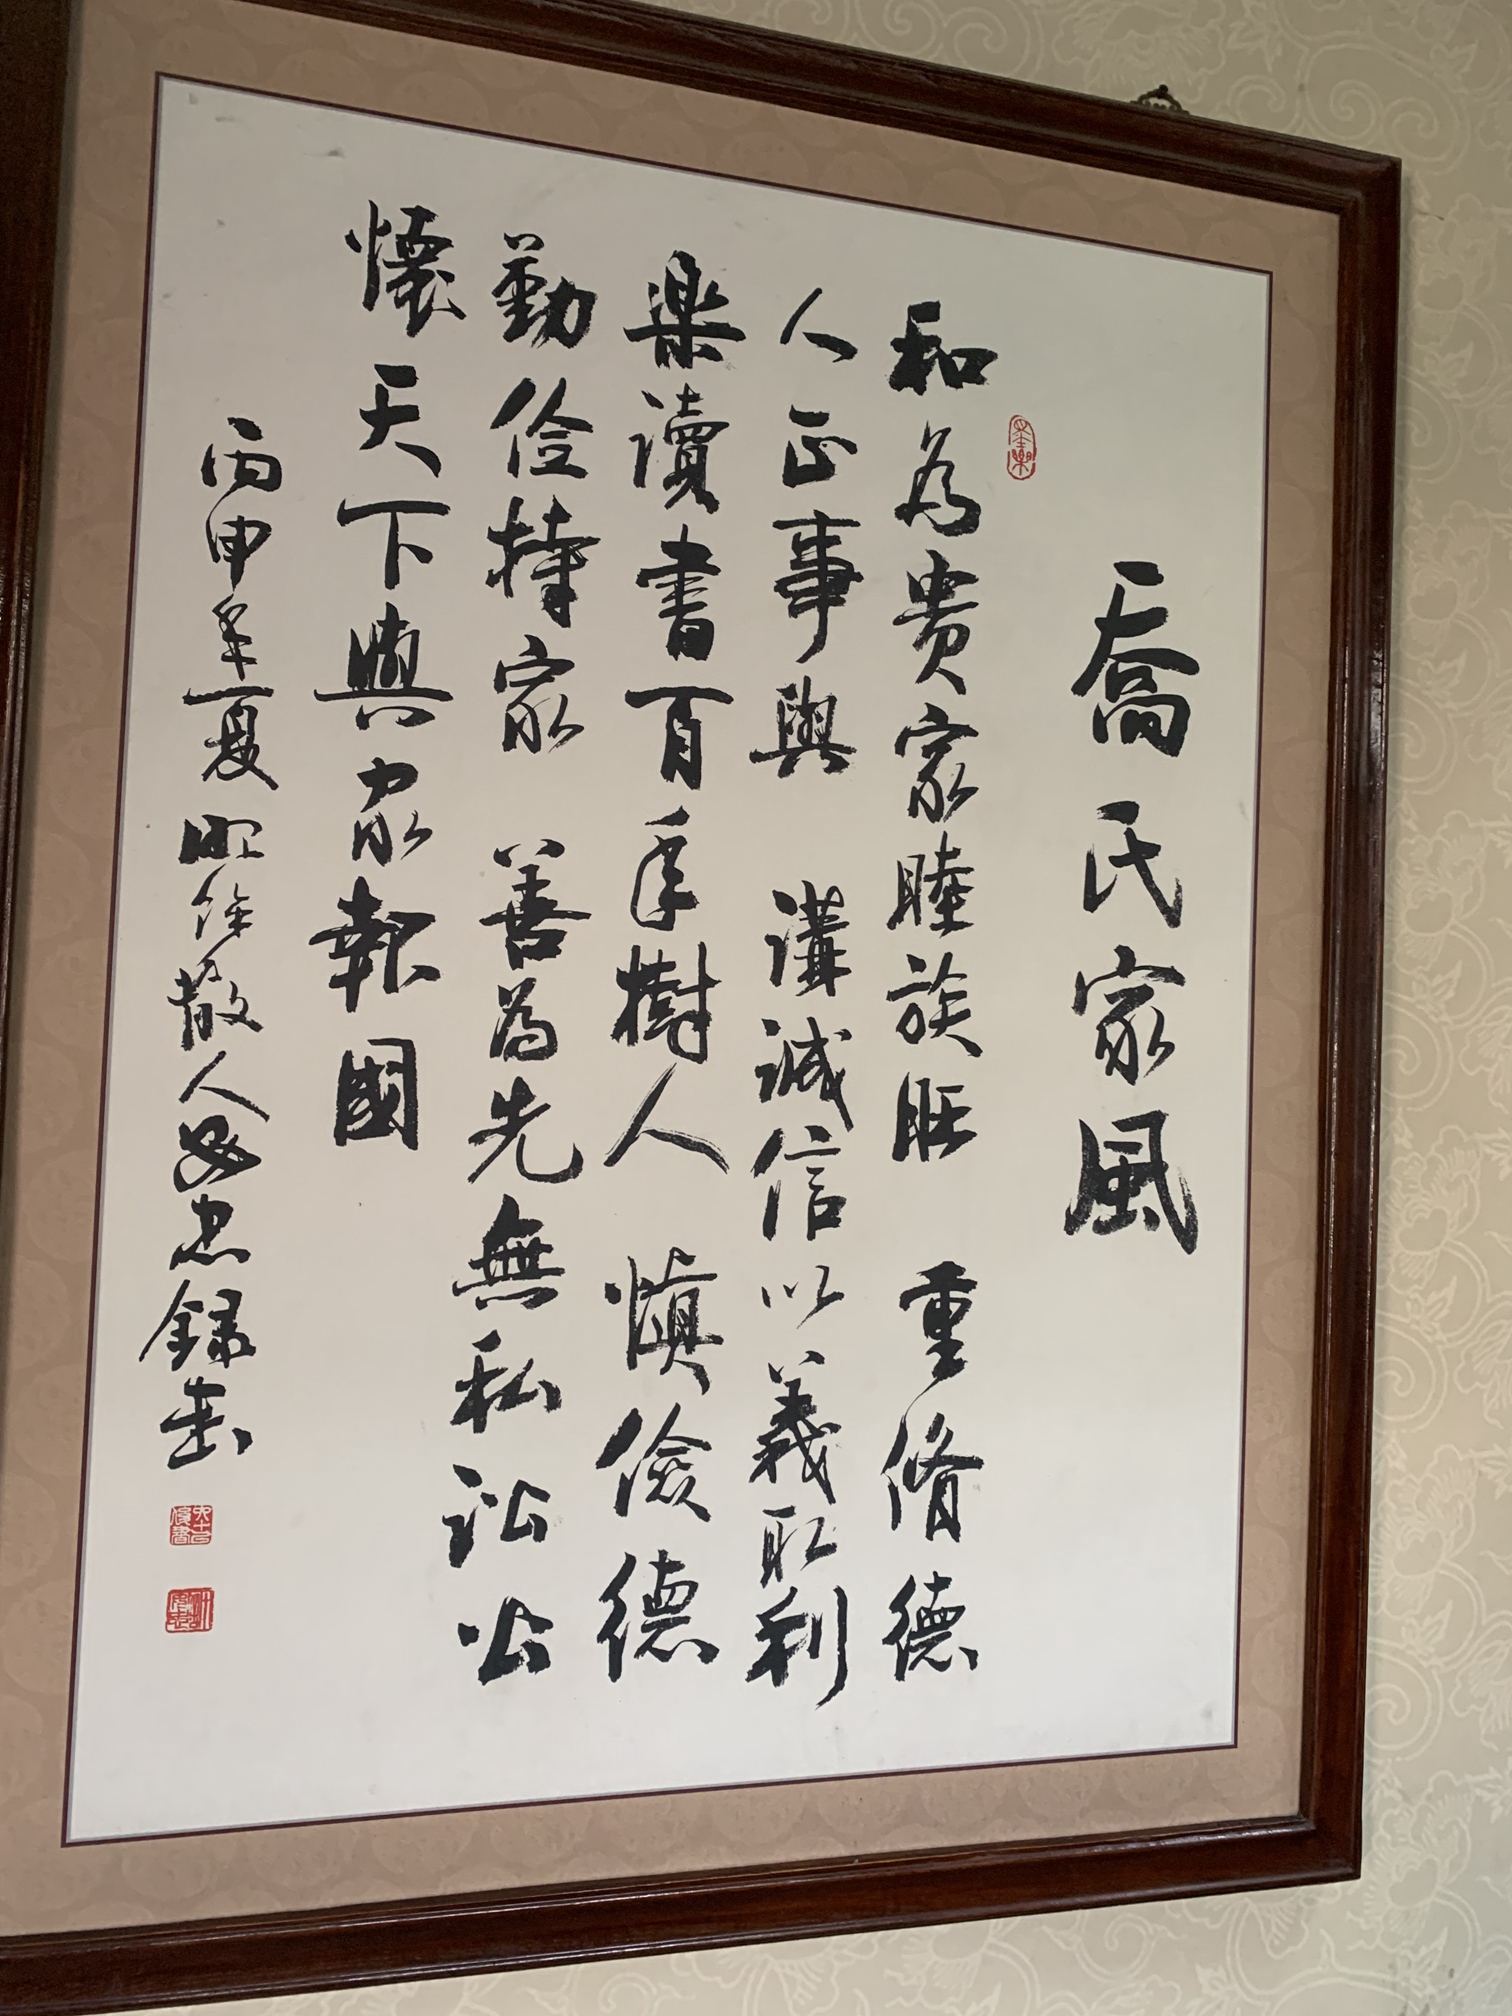 喬氏家風
和為贵家睦族旺 重脩德
人正事興 講誠信以義取利
樂讀書百年樹人 慎儉德
勤儉持家 善為先無私訟公
懷天下興家報國
丙申年夏 散人 忠錄書